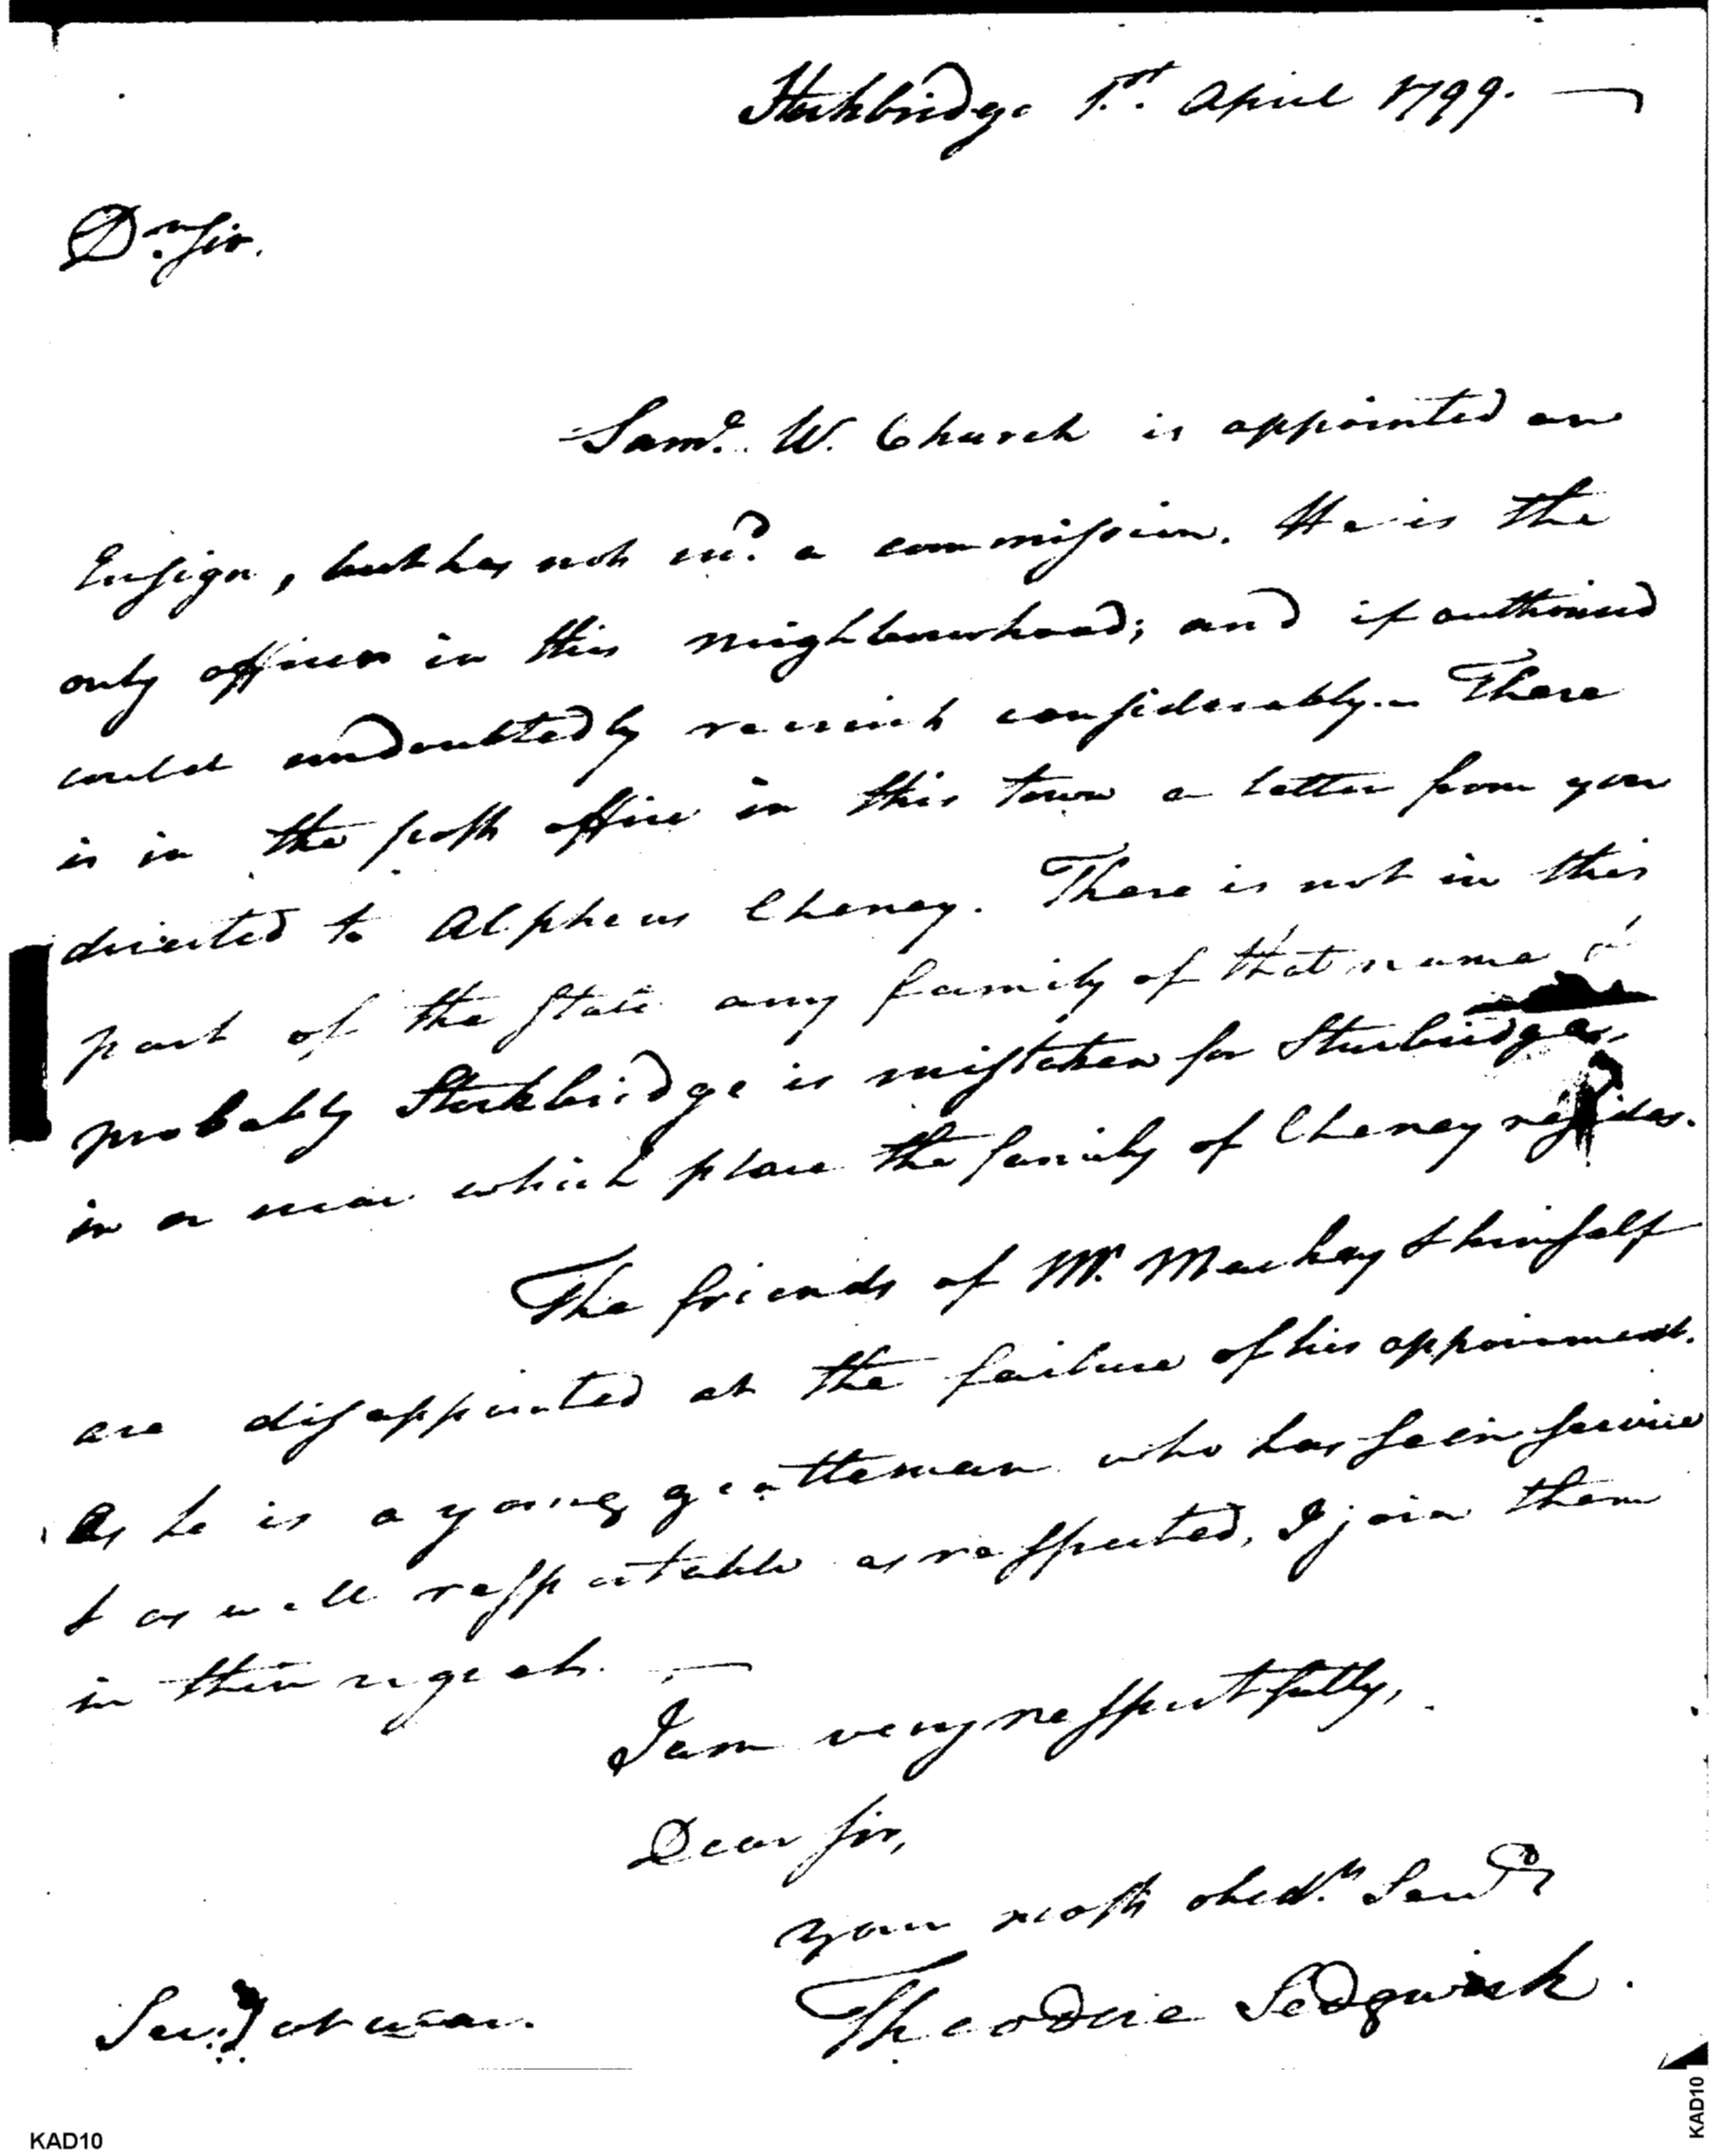 Stockbridge 1st. April 1799.
Dr. Sir.
Saml. W. Church is appointed an
Ensign, but has not recd. a commission. He is the
only officer in this neighbourhood; and if authorised
could undoubtedly recruit considerably. There
is in the post office in this town a letter from you
directed to Alpheus Cheney. There is not in this
part of the State any family of that name &
probably Stockbridge is mistaken for Sturbridge,
in or near which place the family of Cheney resides.
The friends of Mr. Mackay & himself
are disappointed at the failure of his appointment.
As he is a young gentleman who has seen service
& as well respectable as respected, I join them
in their regret.
I am very respectfully,
Dear Sir,
your most obedt. Servt.
Theodore Sedgwick.
Secy. at war.
KAD10
KAD10